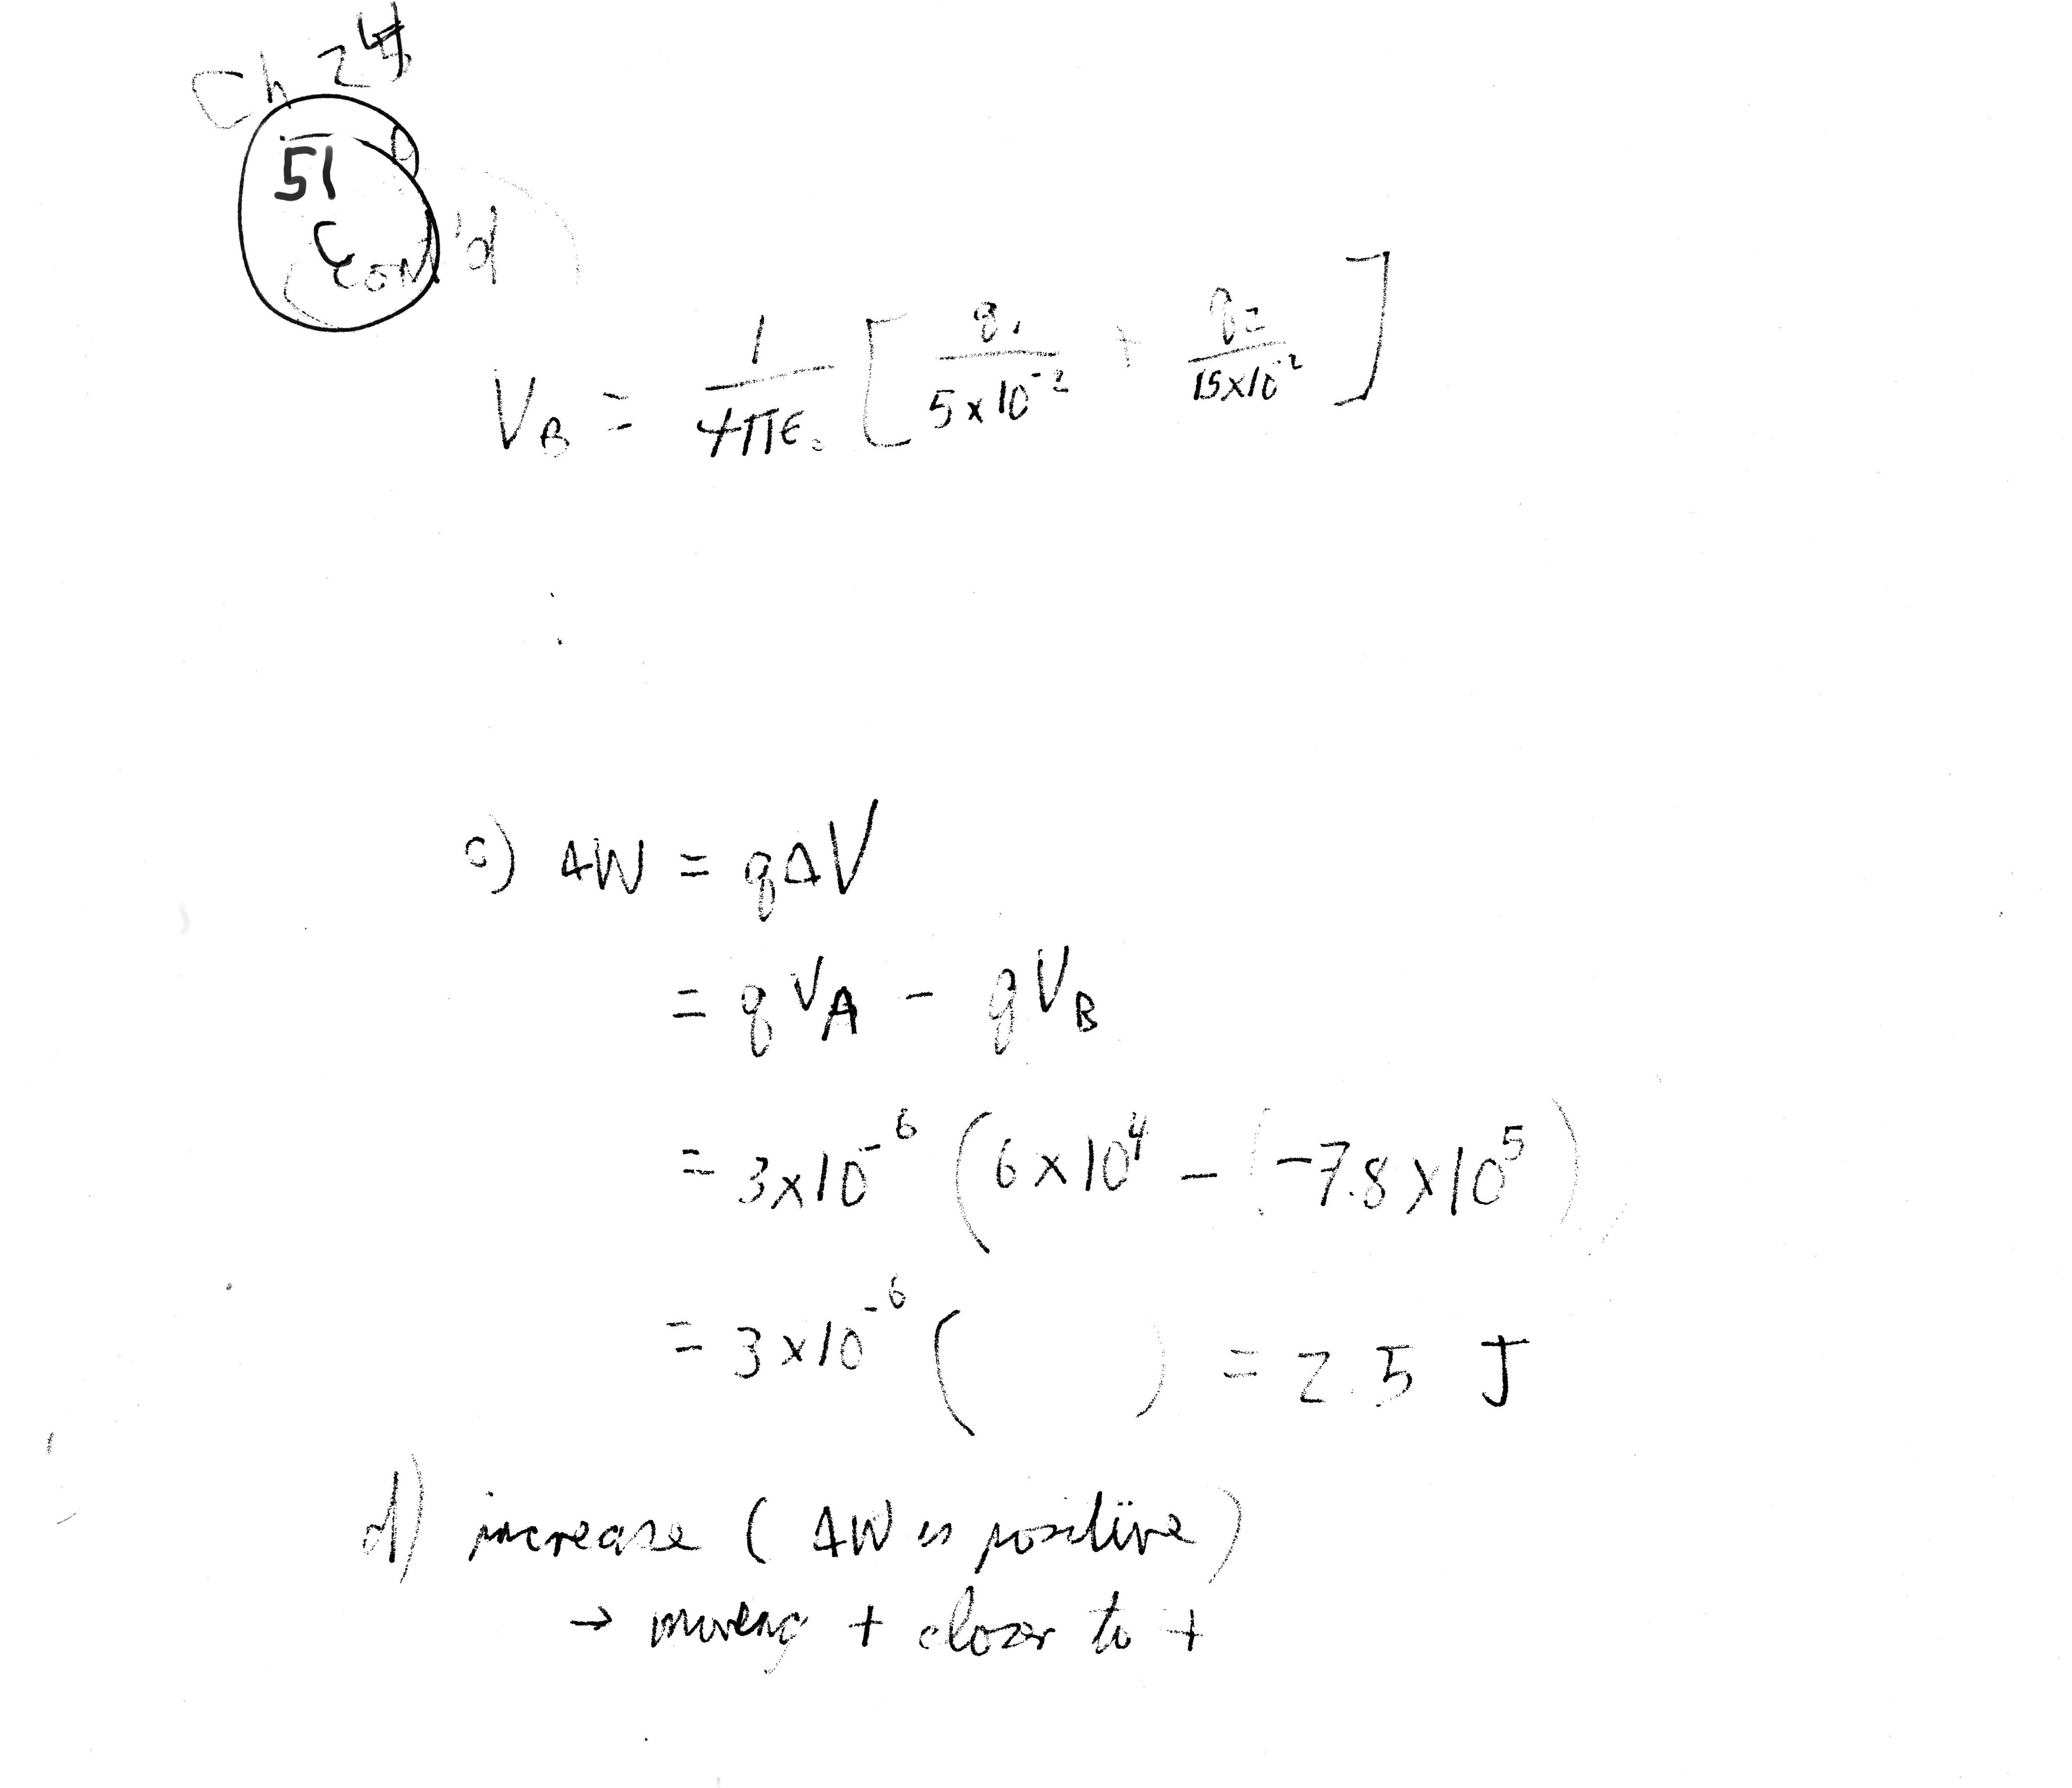 Ch 24
51
C
(Con'd)
V_B = 1/(4πε₀) [ q₁/(5×10⁻²) + q₂/(15×10⁻²) ]
c) ΔW = qΔV
= qV_A - qV_B
= 3×10⁻⁶ (6×10⁴ - (-7.8×10⁵))
= 3×10⁻⁶ ( ) = 2.5 J
d) increase (ΔW is positive)
→ moving + closer to +